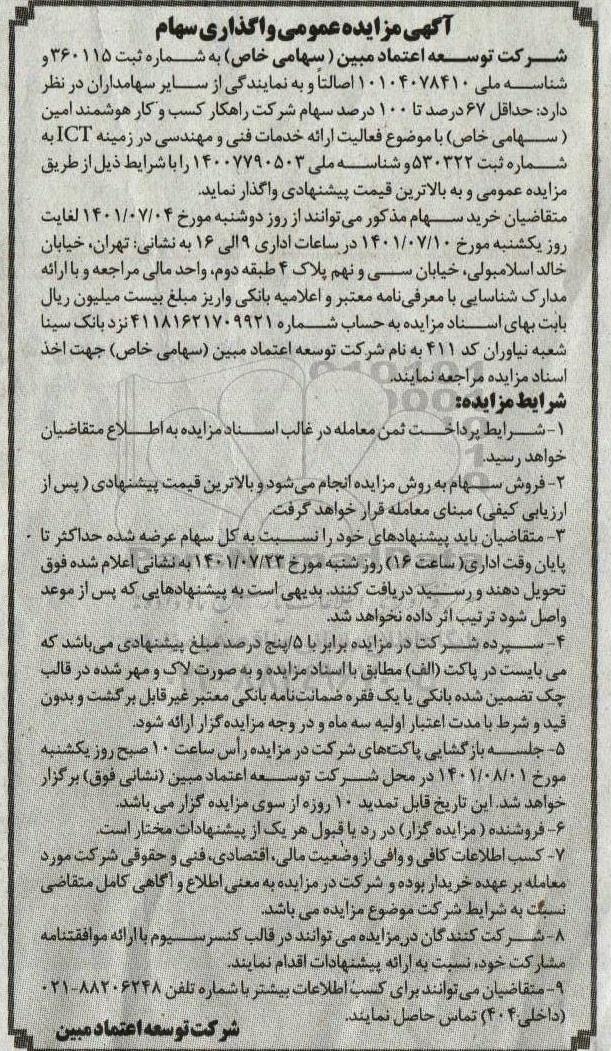 آگهی مزایده عمومی واگذاری سهام
شرکت توسعه اعتماد مبین (سهامی خاص) به شماره ثبت ۳۶۰۱۱۵ و
شناسه ملی ۱۰۱۰۴۰۷۸۴۱۰ اصالتاً و به نمایندگی از سایر سهامداران در نظر
دارد: حداقل ۶۷ درصد تا ۱۰۰ درصد سهام شرکت راهکار کسب و کار هوشمند امین
(سهامی خاص) با موضوع فعالیت ارائه خدمات فنی و مهندسی در زمینه ICT به
شماره ثبت ۵۳۰۳۲۲ و شناسه ملی ۱۴۰۰۷۷۹۰۵۰۳ را با شرایط ذیل از طریق
مزایده عمومی و به بالاترین قیمت پیشنهادی واگذار نماید.
متقاضیان خرید سهام مذکور می‌توانند از روز دوشنبه مورخ ۱۴۰۱/۰۷/۰۴ لغایت
روز یکشنبه مورخ ۱۴۰۱/۰۷/۱۰ در ساعات اداری ۹ الی ۱۶ به نشانی: تهران، خیابان
خالد اسلامبولی، خیابان سی و نهم پلاک ۴ طبقه دوم، واحد مالی مراجعه و با ارائه
مدارک شناسایی با معرفی‌نامه معتبر و اعلامیه بانکی واریز مبلغ بیست میلیون ریال
بابت بهای اسناد مزایده به حساب شماره ۴۱۱۸۱۶۲۱۷۰۹۹۲۱ نزد بانک سینا
شعبه نیاوران کد ۴۱۱ به نام شرکت توسعه اعتماد مبین (سهامی خاص) جهت اخذ
اسناد مزایده مراجعه نمایند.
شرایط مزایده:
۱- شرایط پرداخت ثمن معامله در غالب اسناد مزایده به اطلاع متقاضیان
خواهد رسید.
۲- فروش سهام به روش مزایده انجام می‌شود و بالاترین قیمت پیشنهادی (پس از
ارزیابی کیفی) مبنای معامله قرار خواهد گرفت.
۳- متقاضیان باید پیشنهادهای خود را نسبت به کل سهام عرضه شده حداکثر تا
پایان وقت اداری (ساعت ۱۶) روز شنبه مورخ ۱۴۰۱/۰۷/۲۳ به نشانی اعلام شده فوق
تحویل دهند و رسید دریافت کنند. بدیهی است به پیشنهادهایی که پس از موعد
واصل شود ترتیب اثر داده نخواهد شد.
۴- سپرده شرکت در مزایده برابر با ۵/پنج درصد مبلغ پیشنهادی می‌باشد که
می بایست در پاکت (الف) مطابق با اسناد مزایده و به صورت لاک و مهر شده در قالب
چک تضمین شده بانکی یا یک فقره ضمانت‌نامه بانکی معتبر غیر قابل برگشت و بدون
قید و شرط با مدت اعتبار اولیه سه ماه و در وجه مزایده‌گزار ارائه شود.
۵- جلسه بازگشایی پاکت‌های شرکت در مزایده رأس ساعت ۱۰ صبح روز یکشنبه
مورخ ۱۴۰۱/۰۸/۰۱ در محل شرکت توسعه اعتماد مبین (نشانی فوق) برگزار
خواهد شد. این تاریخ قابل تمدید ۱۰ روزه از سوی مزایده گزار می باشد.
۶- فروشنده (مزایده گزار) در رد یا قبول هر یک از پیشنهادات مختار است.
۷- کسب اطلاعات کافی و وافی از وضعیت مالی، اقتصادی، فنی و حقوقی شرکت مورد
معامله بر عهده خریدار بوده و شرکت در مزایده به معنی اطلاع و آگاهی کامل متقاضی
نسبت به شرایط شرکت موضوع مزایده می باشد.
۸- شرکت کنندگان در مزایده می توانند در قالب کنسرسیوم با ارائه موافقتنامه
مشارکت خود، نسبت به ارائه پیشنهادات اقدام نمایند.
۹- متقاضیان می‌توانند برای کسب اطلاعات بیشتر با شماره تلفن ۸۸۲۰۶۲۴۸-۰۲۱
(داخلی ۴۰۴) تماس حاصل نمایند.
شرکت توسعه اعتماد مبین